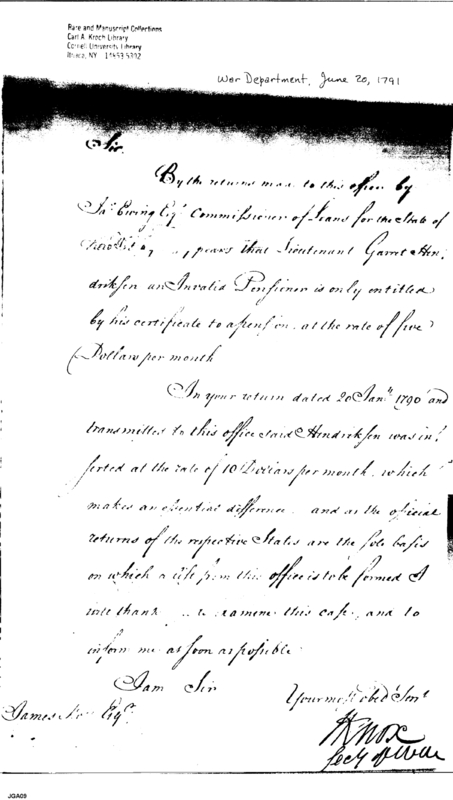 Rare and Manuscript Collections
Carl A. Kroch Library
Cornell University Library
Ithaca, NY 14853-5302
War Department, June 20, 1791
Sir.
By the returns made to this office by
Jas. Ewing Esqr. Commissioner of Loans for the State of
pears that Lieutenant Garret Hen,
driksen an Invalid Pensioner is only entitled
by his certificate to a pension at the rate of five
Dollars per month
In your return dated 20 Jany. 1790 and
transmitted to this office said Hendriksen was in,
serted at the rate of 10 Dollars per month. which
makes an essential difference and as the official
returns of the respective States are the sole basis
on which a list from this office is to be formed I
will thank examine this case, and to
inform me as soon as possible
I am Sir
Your most obedt Servt
James Esqr.
H Knox
Secy of War
JGA09